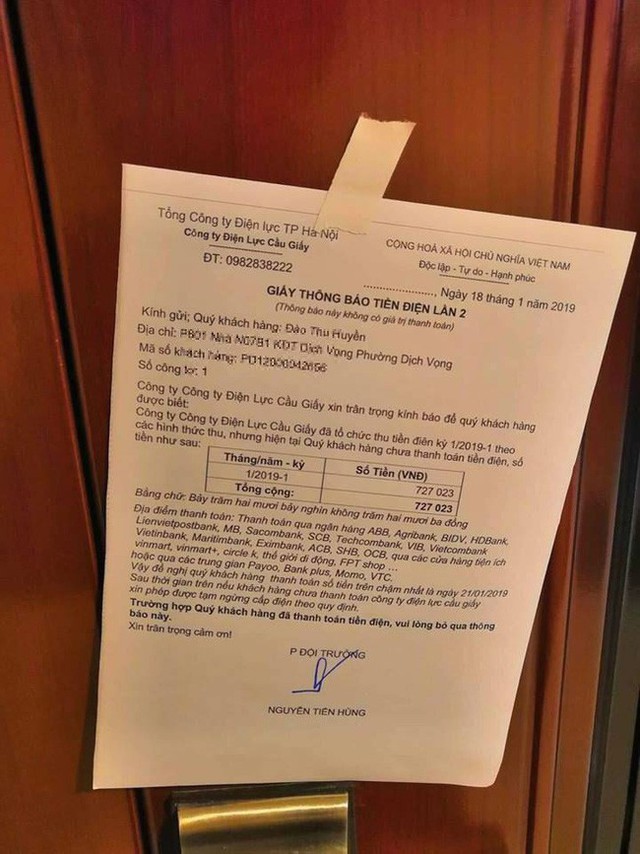 Tổng Công ty Điện lực TP Hà Nội
Công ty Điện Lực Cầu Giấy
ĐT: 0982838222
CỘNG HOÀ XÃ HỘI CHỦ NGHĨA VIỆT NAM
Độc lập - Tự do - Hạnh phúc
...................., Ngày 18 tháng 1 năm 2019
GIẤY THÔNG BÁO TIỀN ĐIỆN LẦN 2
(Thông báo này không có giá trị thanh toán)
Kính gửi: Quý khách hàng: Đào Thu Huyền
Địa chỉ: P801 Nhà N07B1 KĐT Dịch Vọng Phường Dịch Vọng
Mã số khách hàng:
Số công tơ: 1
Công ty Công ty Điện Lực Cầu Giấy xin trân trọng kính báo để quý khách hàng
được biết:
Công ty Công ty Điện Lực Cầu Giấy đã tổ chức thu tiền điên kỳ 1/2019-1 theo
các hình thức thu, nhưng hiện tại Quý khách hàng chưa thanh toán tiền điện, số
tiền như sau:
Tháng/năm - kỳ Số Tiền (VNĐ)
1/2019-1 727 023
Tổng cộng: 727 023
Bằng chữ: Bảy trăm hai mươi bảy nghìn không trăm hai mươi ba đồng
Địa điểm thanh toán: Thanh toán qua ngân hàng ABB, Agribank, BIDV, HDBank,
Lienvietpostbank, MB, Sacombank, SCB, Techcombank, VIB, Vietcombank
Vietinbank, Maritimbank, Eximbank, ACB, SHB, OCB, qua các cửa hàng tiện ích
vinmart, vinmart+, circle k, thế giới di động, FPT shop ...
hoặc qua các trung gian Payoo, Bank plus, Momo, VTC.
Vậy đề nghị quý khách hàng thanh toán số tiền trên chậm nhất là ngày 21/01/2019
Sau thời gian trên nếu khách hàng chưa thanh toán công ty điện lực cầu giấy
xin phép được tạm ngừng cấp điện theo quy định.
Trường hợp Quý khách hàng đã thanh toán tiền điện, vui lòng bỏ qua thông
báo này.
Xin trân trọng cảm ơn!
P ĐỘI TRƯỞNG
NGUYỄN TIẾN HÙNG